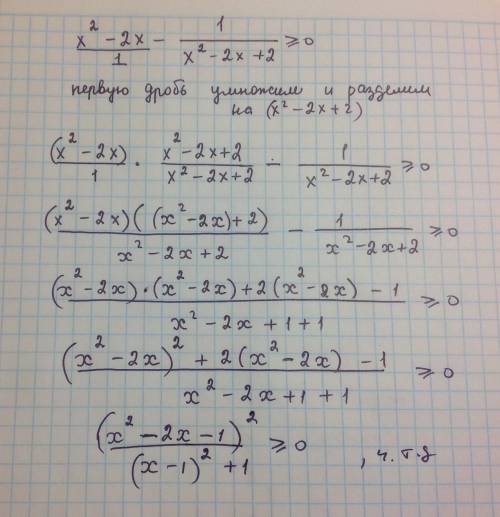 (x² - 2x)/1 - 1/(x² - 2x + 2) ⩾ 0
первую дробь умножим и разделим
на (x² - 2x + 2)
(x² - 2x)/1 · (x² - 2x + 2)/(x² - 2x + 2) - 1/(x² - 2x + 2) ⩾ 0
((x² - 2x)((x² - 2x) + 2))/(x² - 2x + 2) - 1/(x² - 2x + 2) ⩾ 0
((x² - 2x)·(x² - 2x) + 2(x² - 2x) - 1)/(x² - 2x + 1 + 1) ⩾ 0
((x² - 2x)² + 2(x² - 2x) - 1)/(x² - 2x + 1 + 1) ⩾ 0
(x² - 2x - 1)²/((x - 1)² + 1) ⩾ 0 , ч. т. д